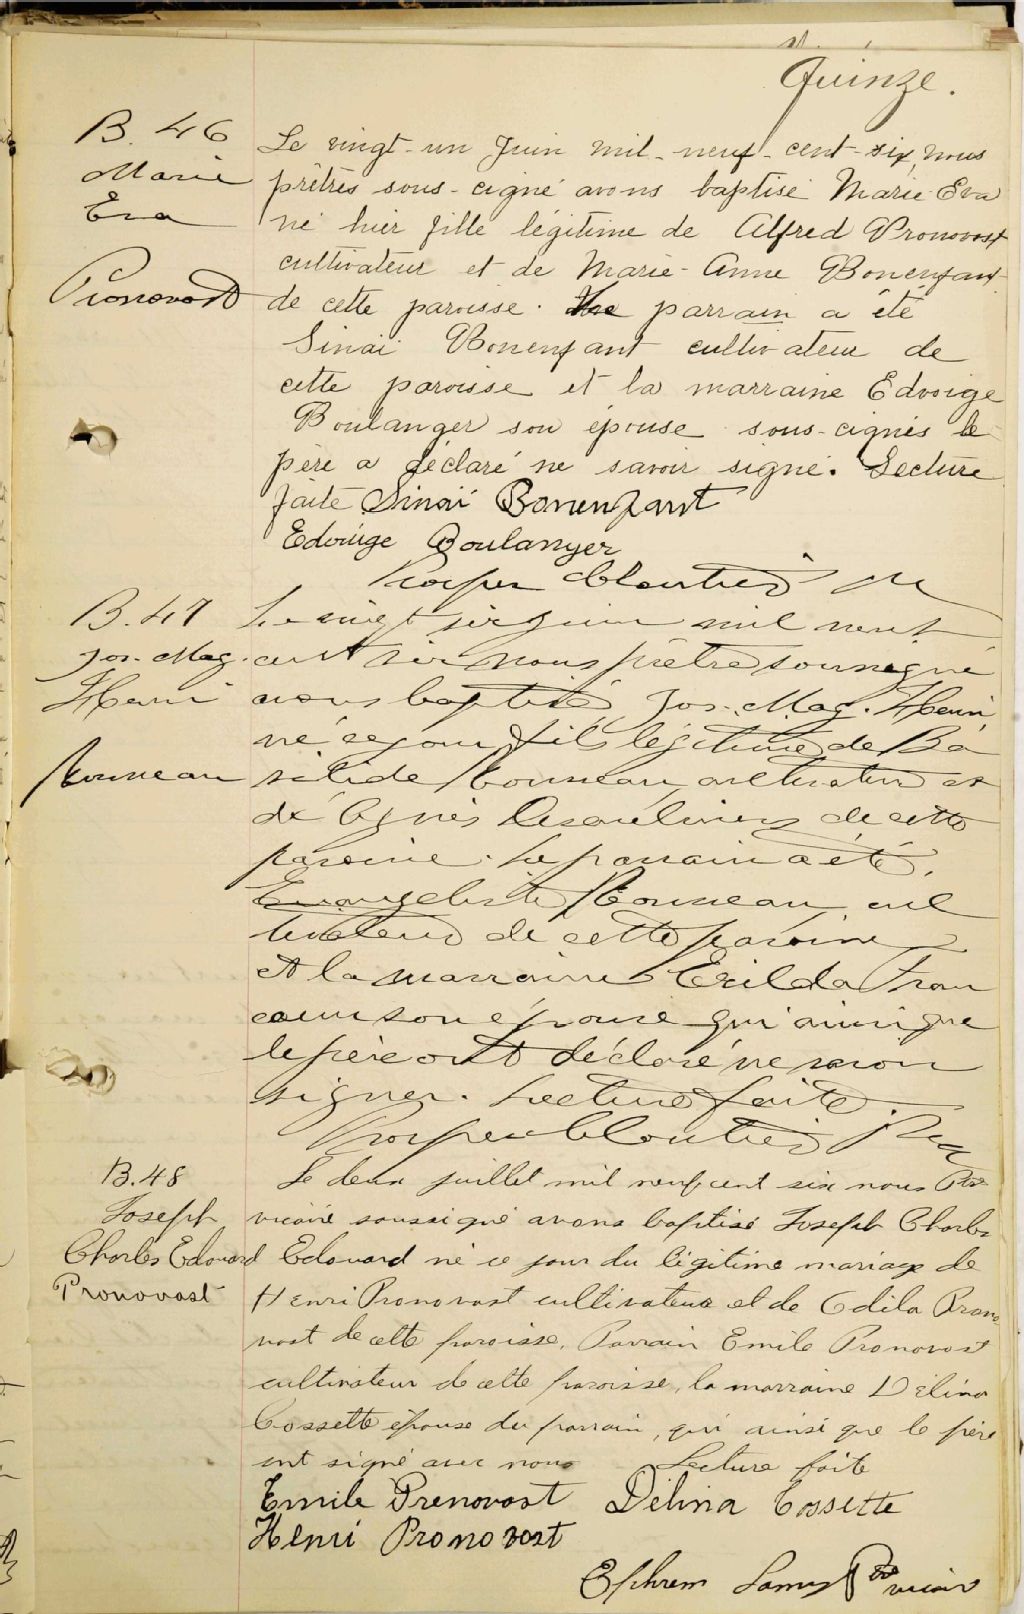 Quinze.
B. 46
Marie
Eva
Pronovost
Le vingt-un Juin mil-neuf-cent-six, nous
prêtres sous-cigné avons baptisé Marie-Eva
né hier fille légitime de Alfred Pronovost
cultivateur et de Marie-Anne Bonenfant
de cette paroisse. parrain a été
Sinai Bonenfant cultivateur de
cette paroisse et la marraine Edwige
Boulanger son épouse sous-cignés le
père a déclaré ne savoir signé. Lecture
faite Sinaï Bonenfant
Edwige Boulanger
Prosper Cloutier
B. 47
Jos. Mag.
Henri
Rousseau
Le vingt six juin mil neuf
cent six nous prêtre soussigné
avons baptisé Jos. Mag. Henri
né ce jour fils légitime de Ba
silide Rousseau cultivateur et
de Agnès Desaulniers de cette
paroisse. Le parrain a été
Evangeliste Rousseau cul
tivateur de cette paroisse
et la marraine Exilda Fran
coeur son épouse qui ainsi que
le père ont déclaré ne savoir
signer. Lecture faite.
Prosper Cloutier Ptre
B. 48
Joseph
Charles Edouard
Pronovost
Le deux juillet mil neuf cent six nous Ptre
vicaire soussigné avons baptisé Joseph Charles
Edouard né ce jour du légitime mariage de
Henri Pronovost cultivateur et de Odila Prono
vost de cette paroisse. Parrain Emile Pronovost
cultivateur de cette paroisse, la marraine Délina
Cossette épouse du parrain, qui ainsi que le père
ont signé avec nous Lecture faite
Emile Prenovost Délina Cossette
Henri Pronovost
Ephrem Lamy Ptre vicaire